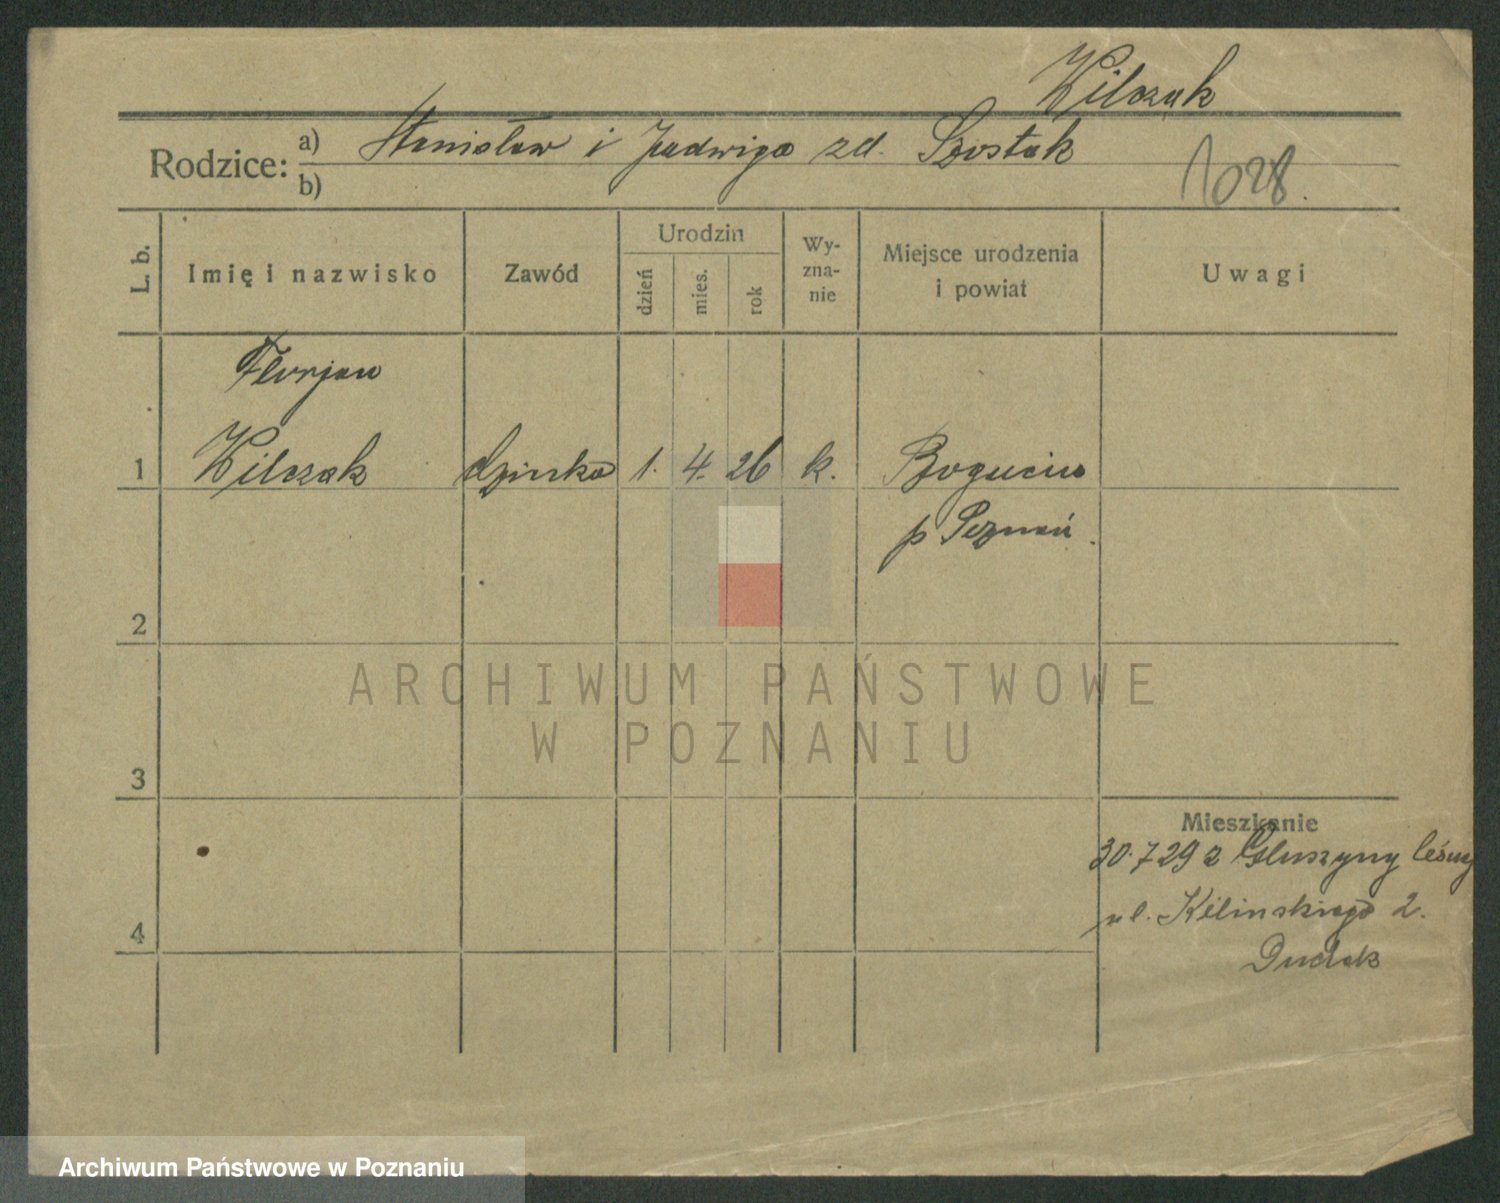 Wilczak
Rodzice: a) Stanisław i Jadwiga zd. Szostak
b)
1028.
L. b.
Imię i nazwisko
Zawód
Urodzin
dzień
mies.
rok
Wy-
zna-
nie
Miejsce urodzenia
i powiat
Uwagi
Florjan
1 Wilczak 1. 4. 26 k.
p Poznań.
2
3
4
Mieszkanie
30.7 29 z Głuszyny leśny
ul. Kilinskiego 2.
Dudek
ARCHIWUM PAŃSTWOWE
W POZNANIU
Archiwum Państwowe w Poznaniu